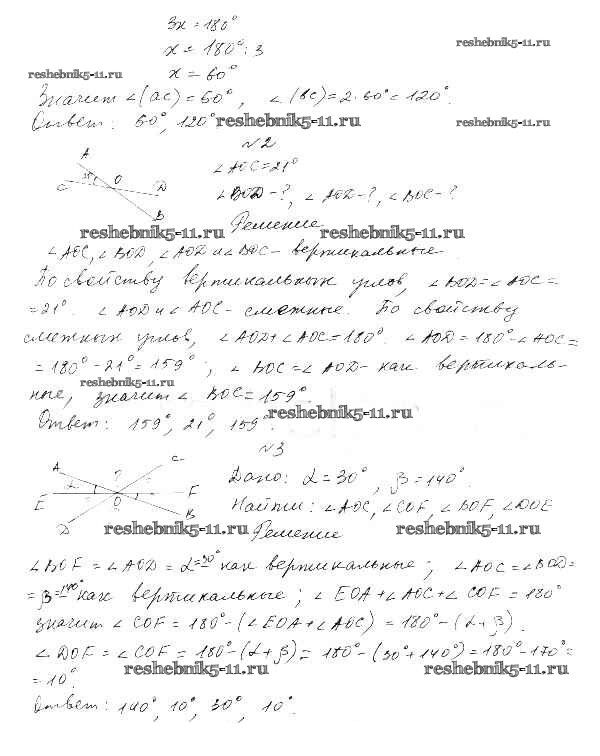 3x = 180°
x = 180° : 3
reshebnik5-11.ru
reshebnik5-11.ru
x = 60°
Значит ∠(ac) = 60°, ∠(bc) = 2·60° = 120°.
Ответ: 60°, 120°
reshebnik5-11.ru
reshebnik5-11.ru
№2
A
C
O
D
B
21°
∠AOC = 21°
∠BOD - ?, ∠AOD - ?, ∠BOC - ?
reshebnik5-11.ru
Решение
reshebnik5-11.ru
∠AOC, ∠BOD, ∠AOD и ∠BOC - вертикальные
По свойству вертикальных углов, ∠BOD = ∠AOC =
= 21°. ∠AOD и ∠AOC - смежные. По свойству
смежных углов, ∠AOD + ∠AOC = 180°. ∠AOD = 180° - ∠AOC =
= 180° - 21° = 159°; ∠BOC = ∠AOD - как вертикаль-
reshebnik5-11.ru
ные, значит ∠BOC = 159°.
reshebnik5-11.ru
Ответ: 159°, 21°, 159°.
№3
A
C
?
α
E
O
F
D
B
Дано: α = 30°, β = 140°.
Найти: ∠AOC, ∠COF, ∠BOF, ∠DOE
reshebnik5-11.ru
Решение
reshebnik5-11.ru
∠BOF = ∠AOD = α = 30° как вертикальные; ∠AOC = ∠BOD =
= β = 140° как вертикальные; ∠EOA + ∠AOC + ∠COF = 180°
значит ∠COF = 180° - (∠EOA + ∠AOC) = 180° - (α + β).
∠DOF = ∠COF = 180° - (α + β) = 180° - (30° + 140°) = 180° - 170° =
= 10°.
reshebnik5-11.ru
reshebnik5-11.ru
Ответ: 140°, 10°, 30°, 10°.